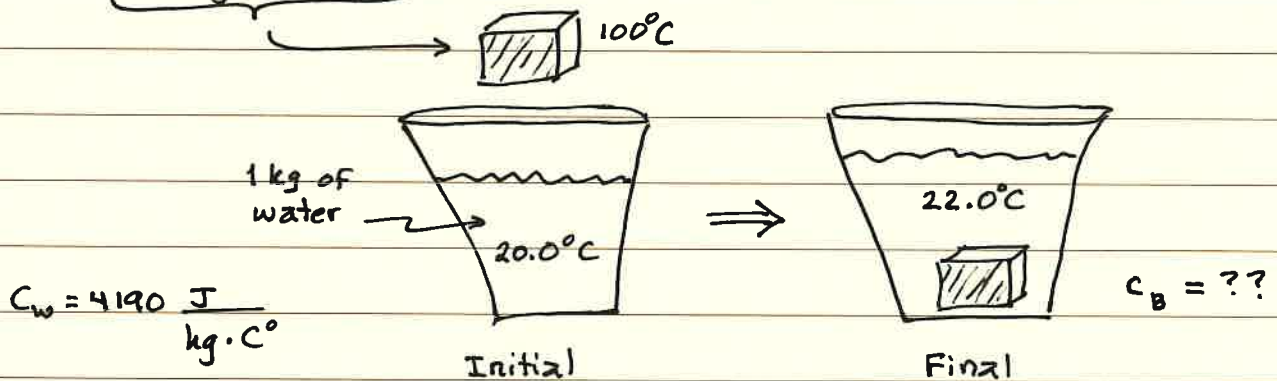 100°C
1 kg of
water
20.0°C
22.0°C
C_w = 4190 J / kg·C°
C_B = ??
Initial
Final